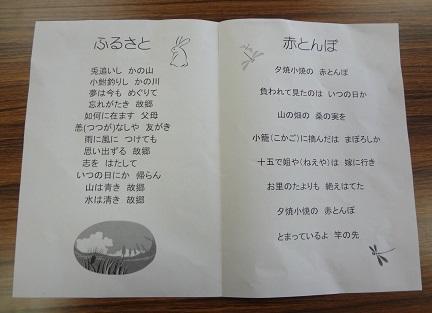 ふるさと
兎追いし かの山
小鮒釣りし かの川
夢は今も めぐりて
忘れがたき 故郷
如何に在ます 父母
恙(つつが)なしや 友がき
雨に風に つけても
思い出ずる 故郷
志を はたして
いつの日にか 帰らん
山は青き 故郷
水は清き 故郷
赤とんぼ
夕焼小焼の 赤とんぼ
負われて見たのは いつの日か
山の畑の 桑の実を
小籠(こかご)に摘んだは まぼろしか
十五で姐や(ねえや)は 嫁に行き
お里のたよりも 絶えはてた
夕焼小焼の 赤とんぼ
とまっているよ 竿の先